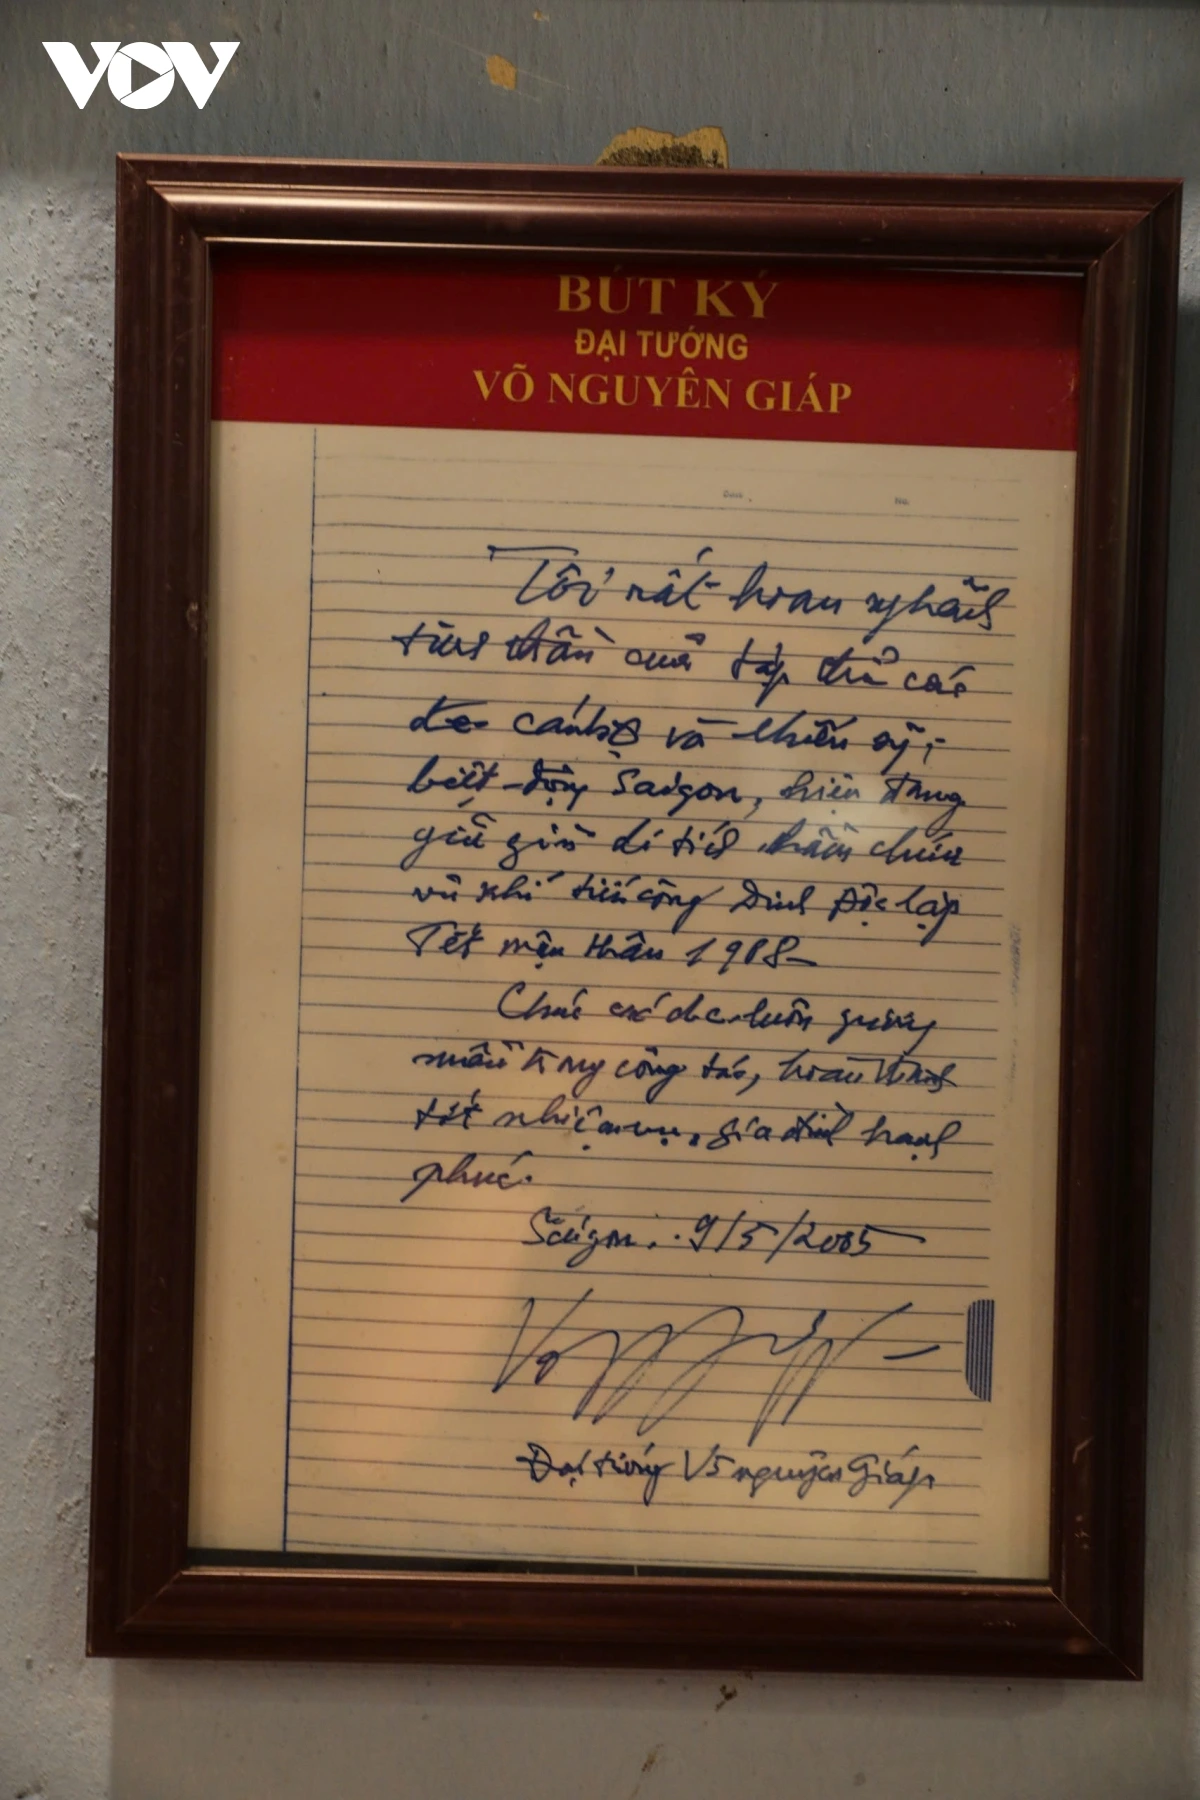 VOV
BÚT KÝ
ĐẠI TƯỚNG
VÕ NGUYÊN GIÁP
Date No.
Tôi rất hoan nghênh
tinh thần của tập thể các
đ/c cán bộ và chiến sỹ,
biệt-động Saigon, hiện đang
giữ gìn di tích hầm chứa
vũ khí tiến công Dinh Độc lập
Tết mậu thân 1968-
Chúc các đ/c luôn gương
mẫu trong công tác, hoàn thành
tốt nhiệm vụ, gia đình hạnh
phúc.
Sàigon, 9/5/2005
Đại tướng Võ nguyên Giáp